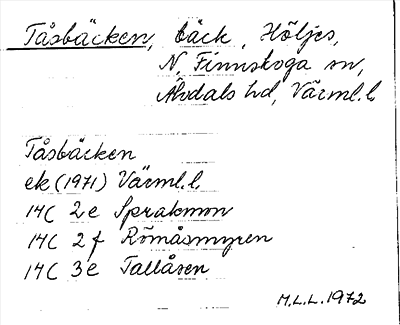 Tåsbäcken, bäck, Höljes,
N, Finnskoga sn,
Älvdals hd, Värml. l.
Tåsbäcken
ek (1971) Värml. l.
14C 2e Sprakmon
14C 2f Römåsmyren
14C 3e Tallåsen
M.L.L. 1972